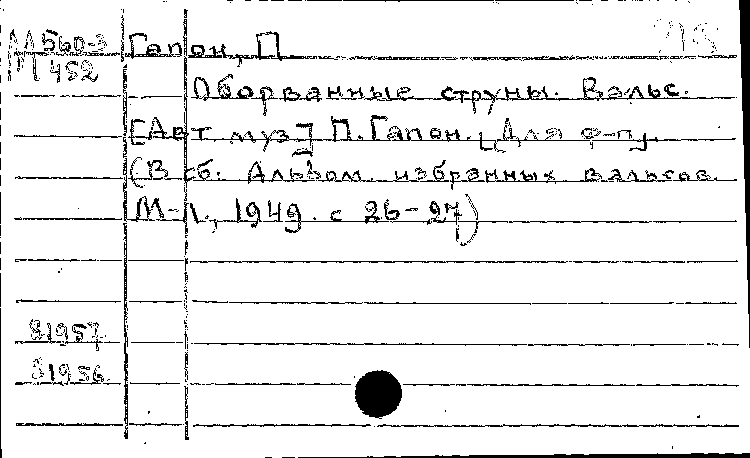 М 560-3 Гапон, П.
452
Оборванные струны. Вальс.
[Авт муз] П. Гапон. [Для ф-п].
(В сб. Альбом избранных вальсов.
М-Л., 1949. с 26-27)
81957
81956